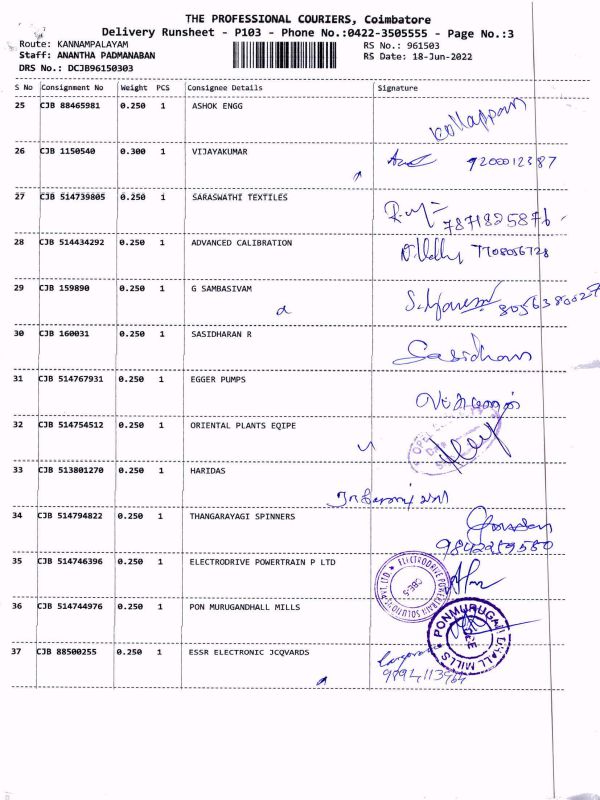 THE PROFESSIONAL COURIERS, Coimbatore
Delivery Runsheet - P103 - Phone No.:0422-3505555 - Page No.:3
Route: KANNAMPALAYAM RS No.: 961503
Staff: ANANTHA PADMANABAN RS Date: 18-Jun-2022
DRS No.: DCJB96150303
S No Consignment No Weight PCS Consignee Details Signature
25 CJB 88465981 0.250 1 ASHOK ENGG
26 CJB 1150540 0.300 1 VIJAYAKUMAR 9200012387
27 CJB 514739805 0.250 1 SARASWATHI TEXTILES 7871825876
28 CJB 514434292 0.250 1 ADVANCED CALIBRATION 7708056728
29 CJB 159890 0.250 1 G SAMBASIVAM 8056380027
30 CJB 160031 0.250 1 SASIDHARAN R Sasidharan
31 CJB 514767931 0.250 1 EGGER PUMPS
32 CJB 514754512 0.250 1 ORIENTAL PLANTS EQIPE
33 CJB 513801270 0.250 1 HARIDAS
34 CJB 514794822 0.250 1 THANGARAYAGI SPINNERS
9842259580
35 CJB 514746396 0.250 1 ELECTRODRIVE POWERTRAIN P LTD ELECTRODRIVE POWERTRAIN SOLUTIONS PVT. LTD. CBE-5
36 CJB 514744976 0.250 1 PON MURUGANDHALL MILLS
37 CJB 88500255 0.250 1 ESSR ELECTRONIC JCQVARDS
9894113964